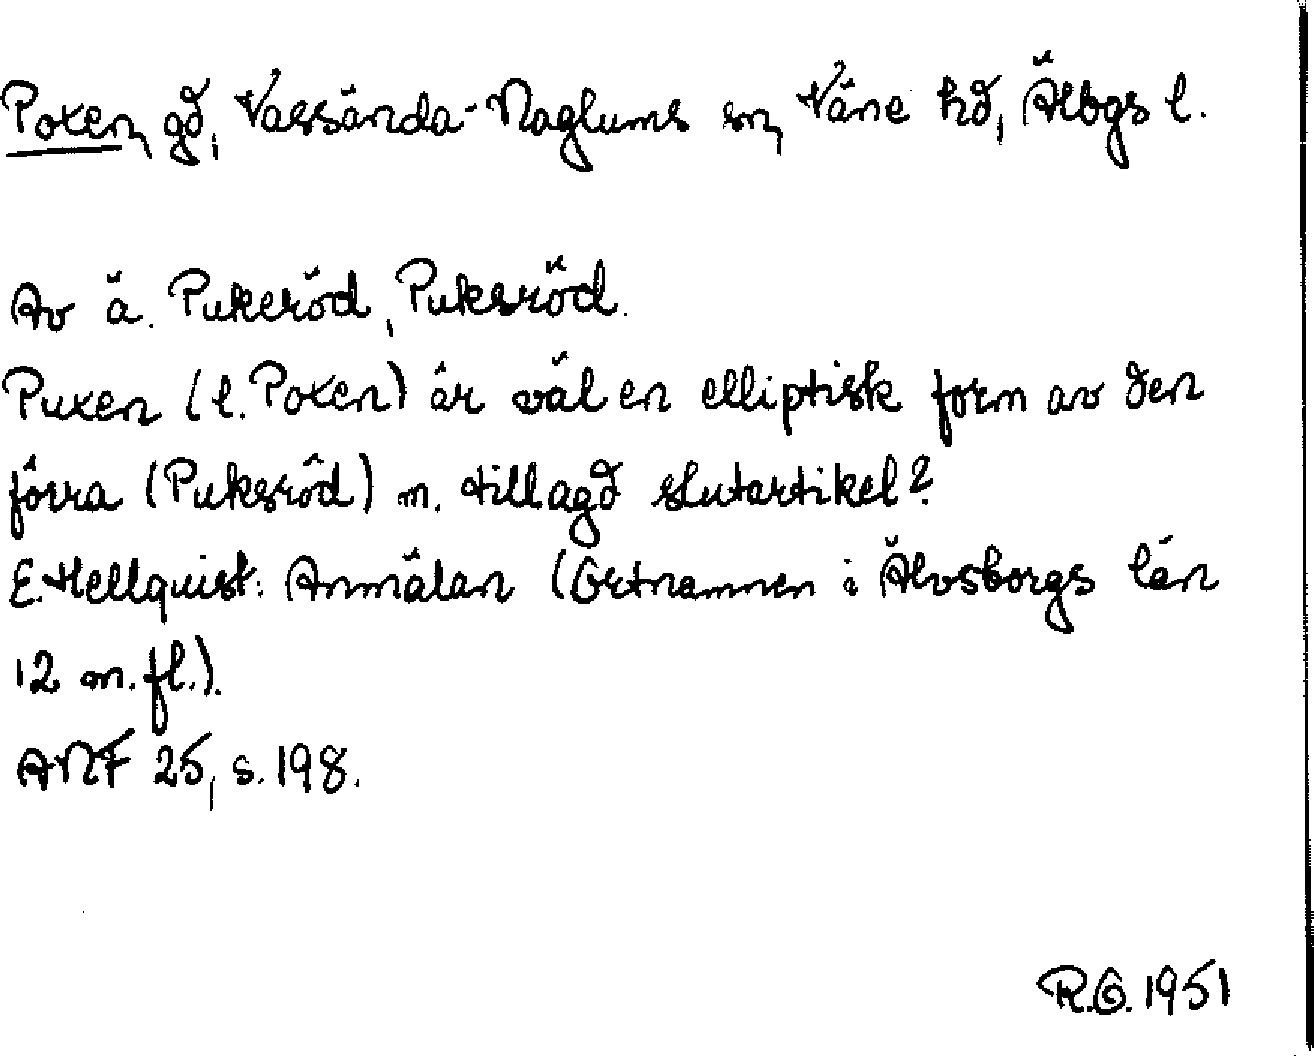 Poxen, gd, Vassända-Naglums sn, Väne hd, Älbgs l.
Av ä. Pukeröd, Puksröd.
Puxen (l. Poxen) är väl en elliptisk form av den
förra (Puksröd) m. tillagd slutartikel?
E. Hellquist: Anmälan (Ortnamnen i Älvsborgs län
12 m. fl.).
ANF 25, s. 198.
R.G. 1951